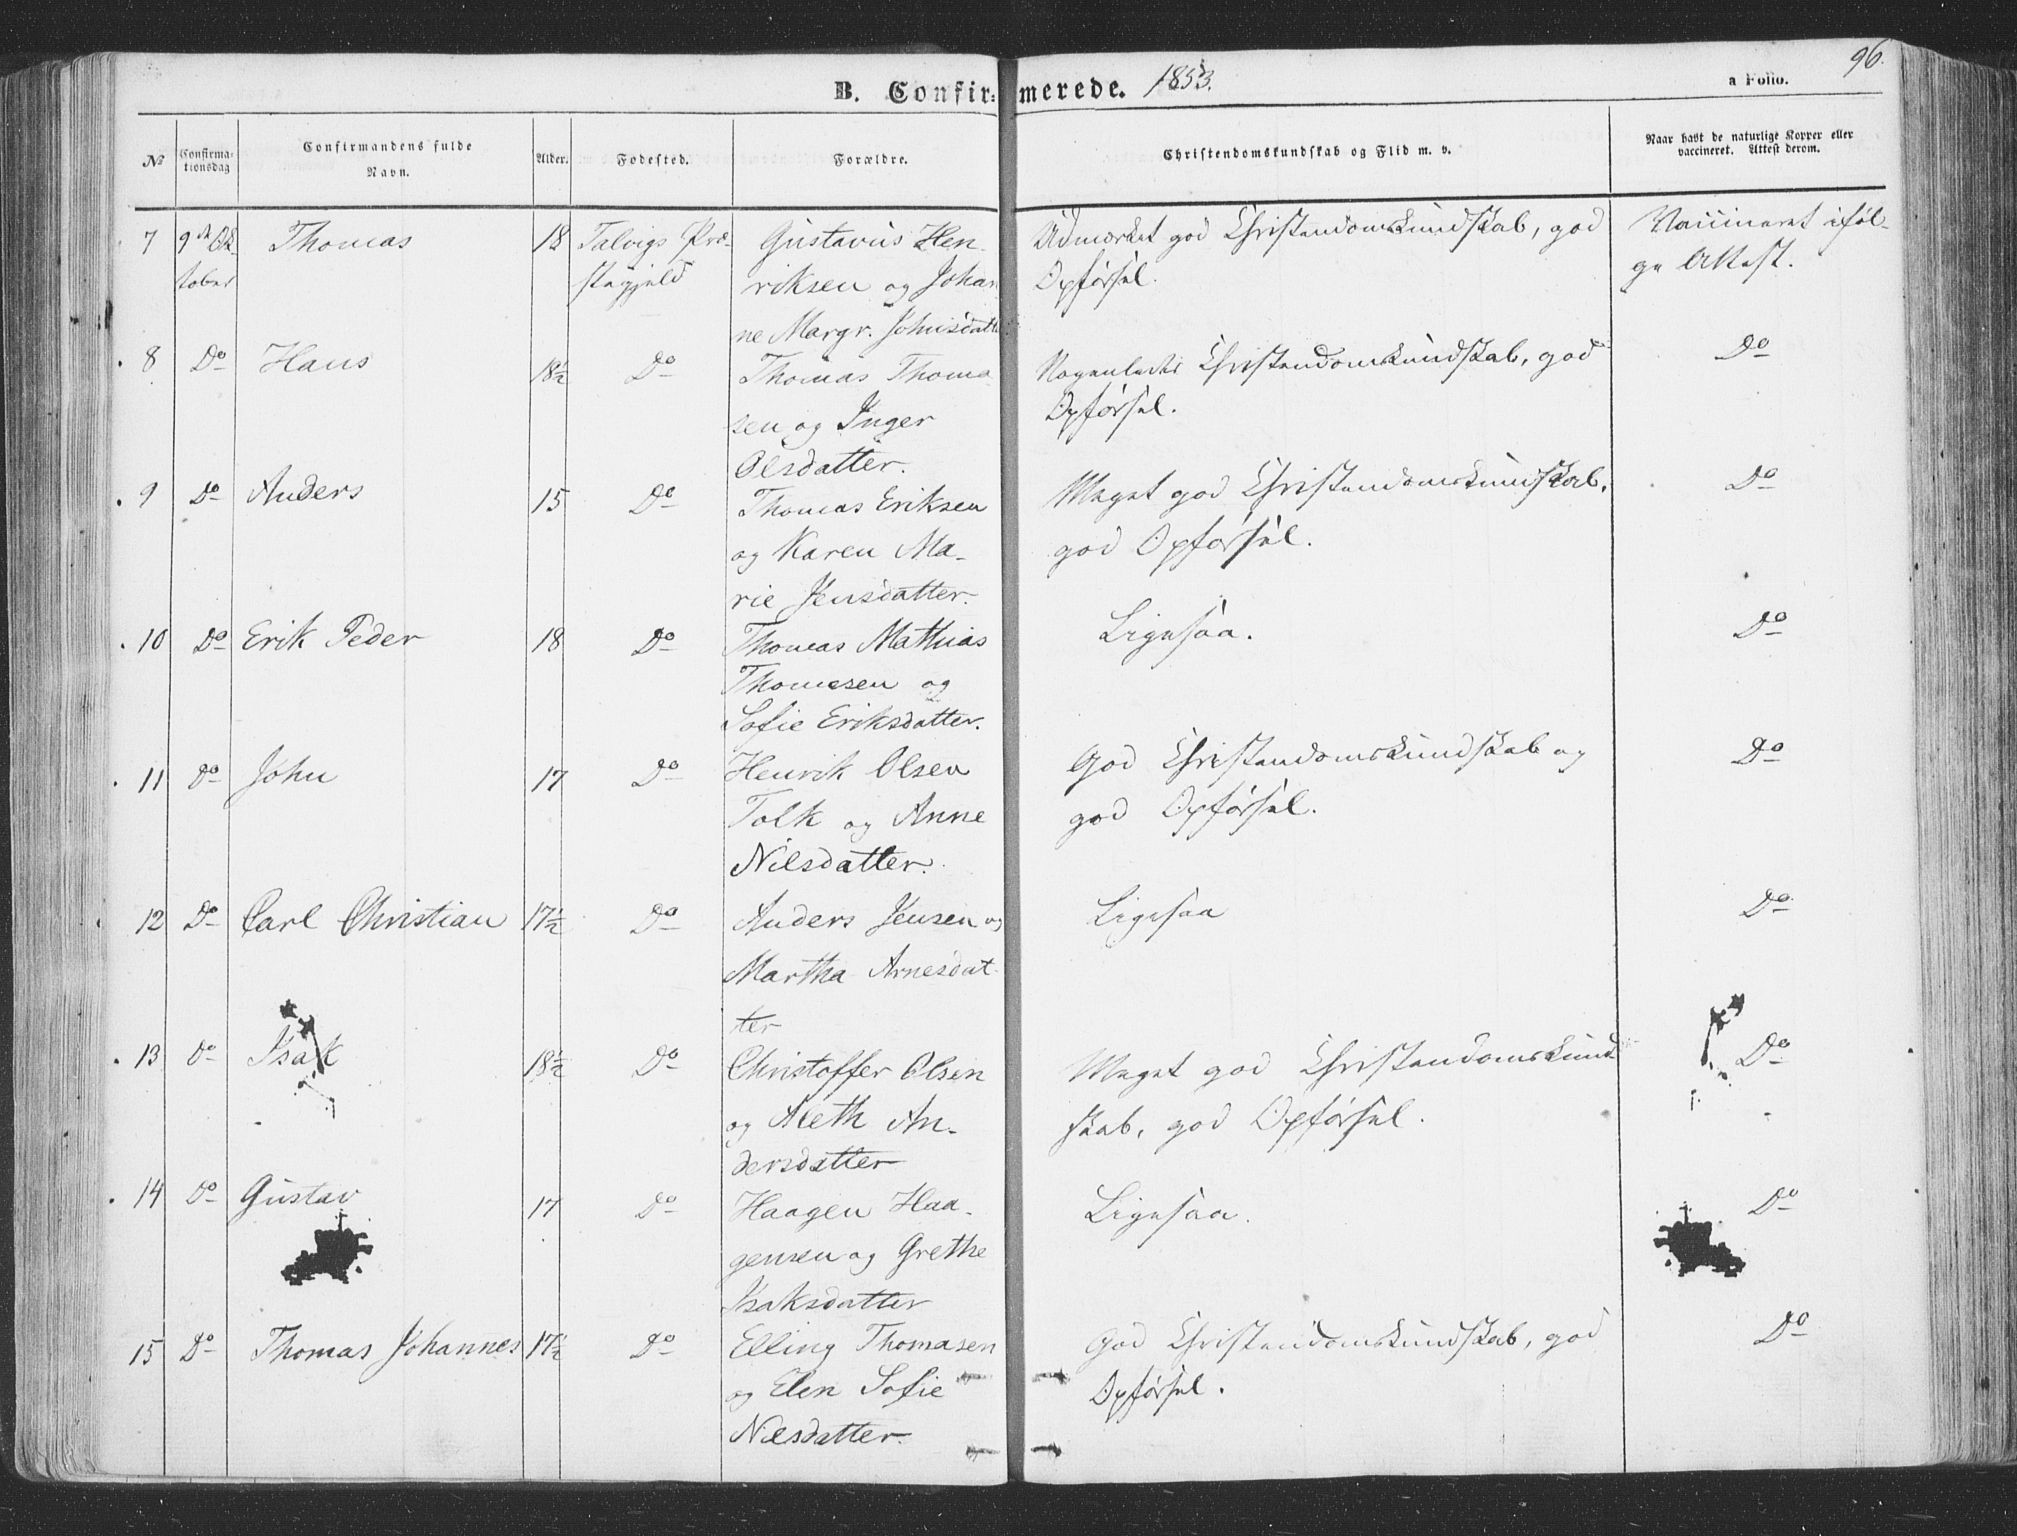 96.
B. Confirmerede. 1853.
a Folio.
No
Confirmationsdag
Confirmandens fulde Navn.
Alder.
Fodested.
Forældre.
Christendomskundskab og Flid m. v.
Naar havt de naturlige Kopper eller
vaccineret. Attest derom.
7 9de Ok Thomas 18 Talvigs Præ- Gustavus Hen- Udmærket god Christendomskundskab, god Vaccineret iføl-
tober stegjeld riksen og Johan Opførsel. ge Attest.
ne Margr. Johnsdatt
8 Do Hans 18½ Do Thomas Thoma Nogenledes Christendomskundskab, god Do
sen og Inger Opførsel.
Olsdatter.
9 Do Anders 15 Do Thomas Eriksen Meget god Christendomskundskab, Do
og Karen Ma- god Opførsel.
rie Jensdatter.
10 Do Erik Peder 18 Do Thomas Mathias Ligesaa. Do
Thomesen og
Sofie Eriksdatter.
11 Do John 17 Do Henrik Olsen God Christendomskundskab og Do
Tolk og Anne god Opførsel.
Nilsdatter.
12 Do Carl Christian 17½ Do Anders Jensen og Ligesaa Do
Martha Arnesdat-
ter
13 Do Isak 18½ Do Christoffer Olsen Meget god Christendomskund Do
og Aleth An- skab, god Opførsel.
dersdatter
14 Do Gustav 17 Do Haagen Haa- Ligesaa. Do
gensen og Grethe
Isaksdatter
15 Do Thomas Johannes 17½ Do Elling Thomasen God Christendomskundskab, god Do
og Elen Sofie Opførsel.
Nilsdatter.